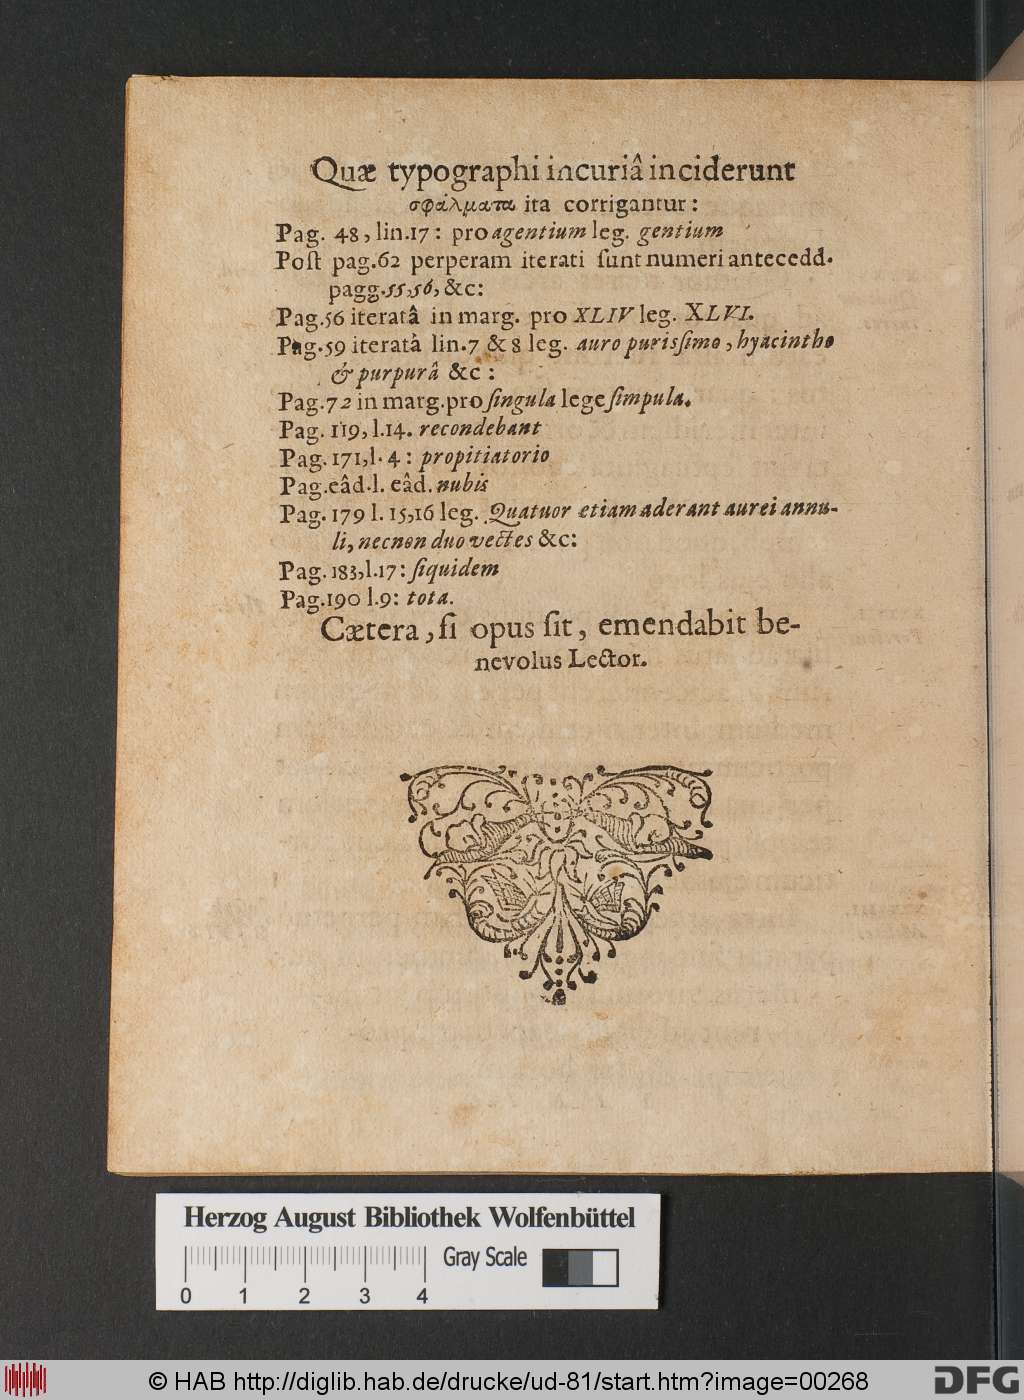 Quæ typographi incuriâ inciderunt
σφάλματα ita corrigantur:
Pag. 48, lin.17: pro agentium leg. gentium
Poſt pag.62 perperam iterati ſunt numeri antecedd.
pagg.55,56, &c:
Pag.56 iteratâ in marg. pro XLIV leg. XLVI.
Pag.59 iteratâ lin.7 & 8 leg. auro purisſimo, hyacintho
& purpurâ &c:
Pag.72 in marg. pro ſingula lege ſimpula.
Pag. 119, l.14. recondebant
Pag. 171, l. 4: propitiatorio
Pag. eâd. l. eâd. nubis
Pag. 179 l. 15,16 leg. Quatuor etiam aderant aurei annu-
li, necnon duo vectes &c:
Pag. 183, l.17: ſiquidem
Pag. 190 l.9: tota.
Cætera, ſi opus ſit, emendabit be-
nevolus Lector.
Herzog August Bibliothek Wolfenbüttel
Gray Scale
0 1 2 3 4
© HAB http://diglib.hab.de/drucke/ud-81/start.htm?image=00268
DFG